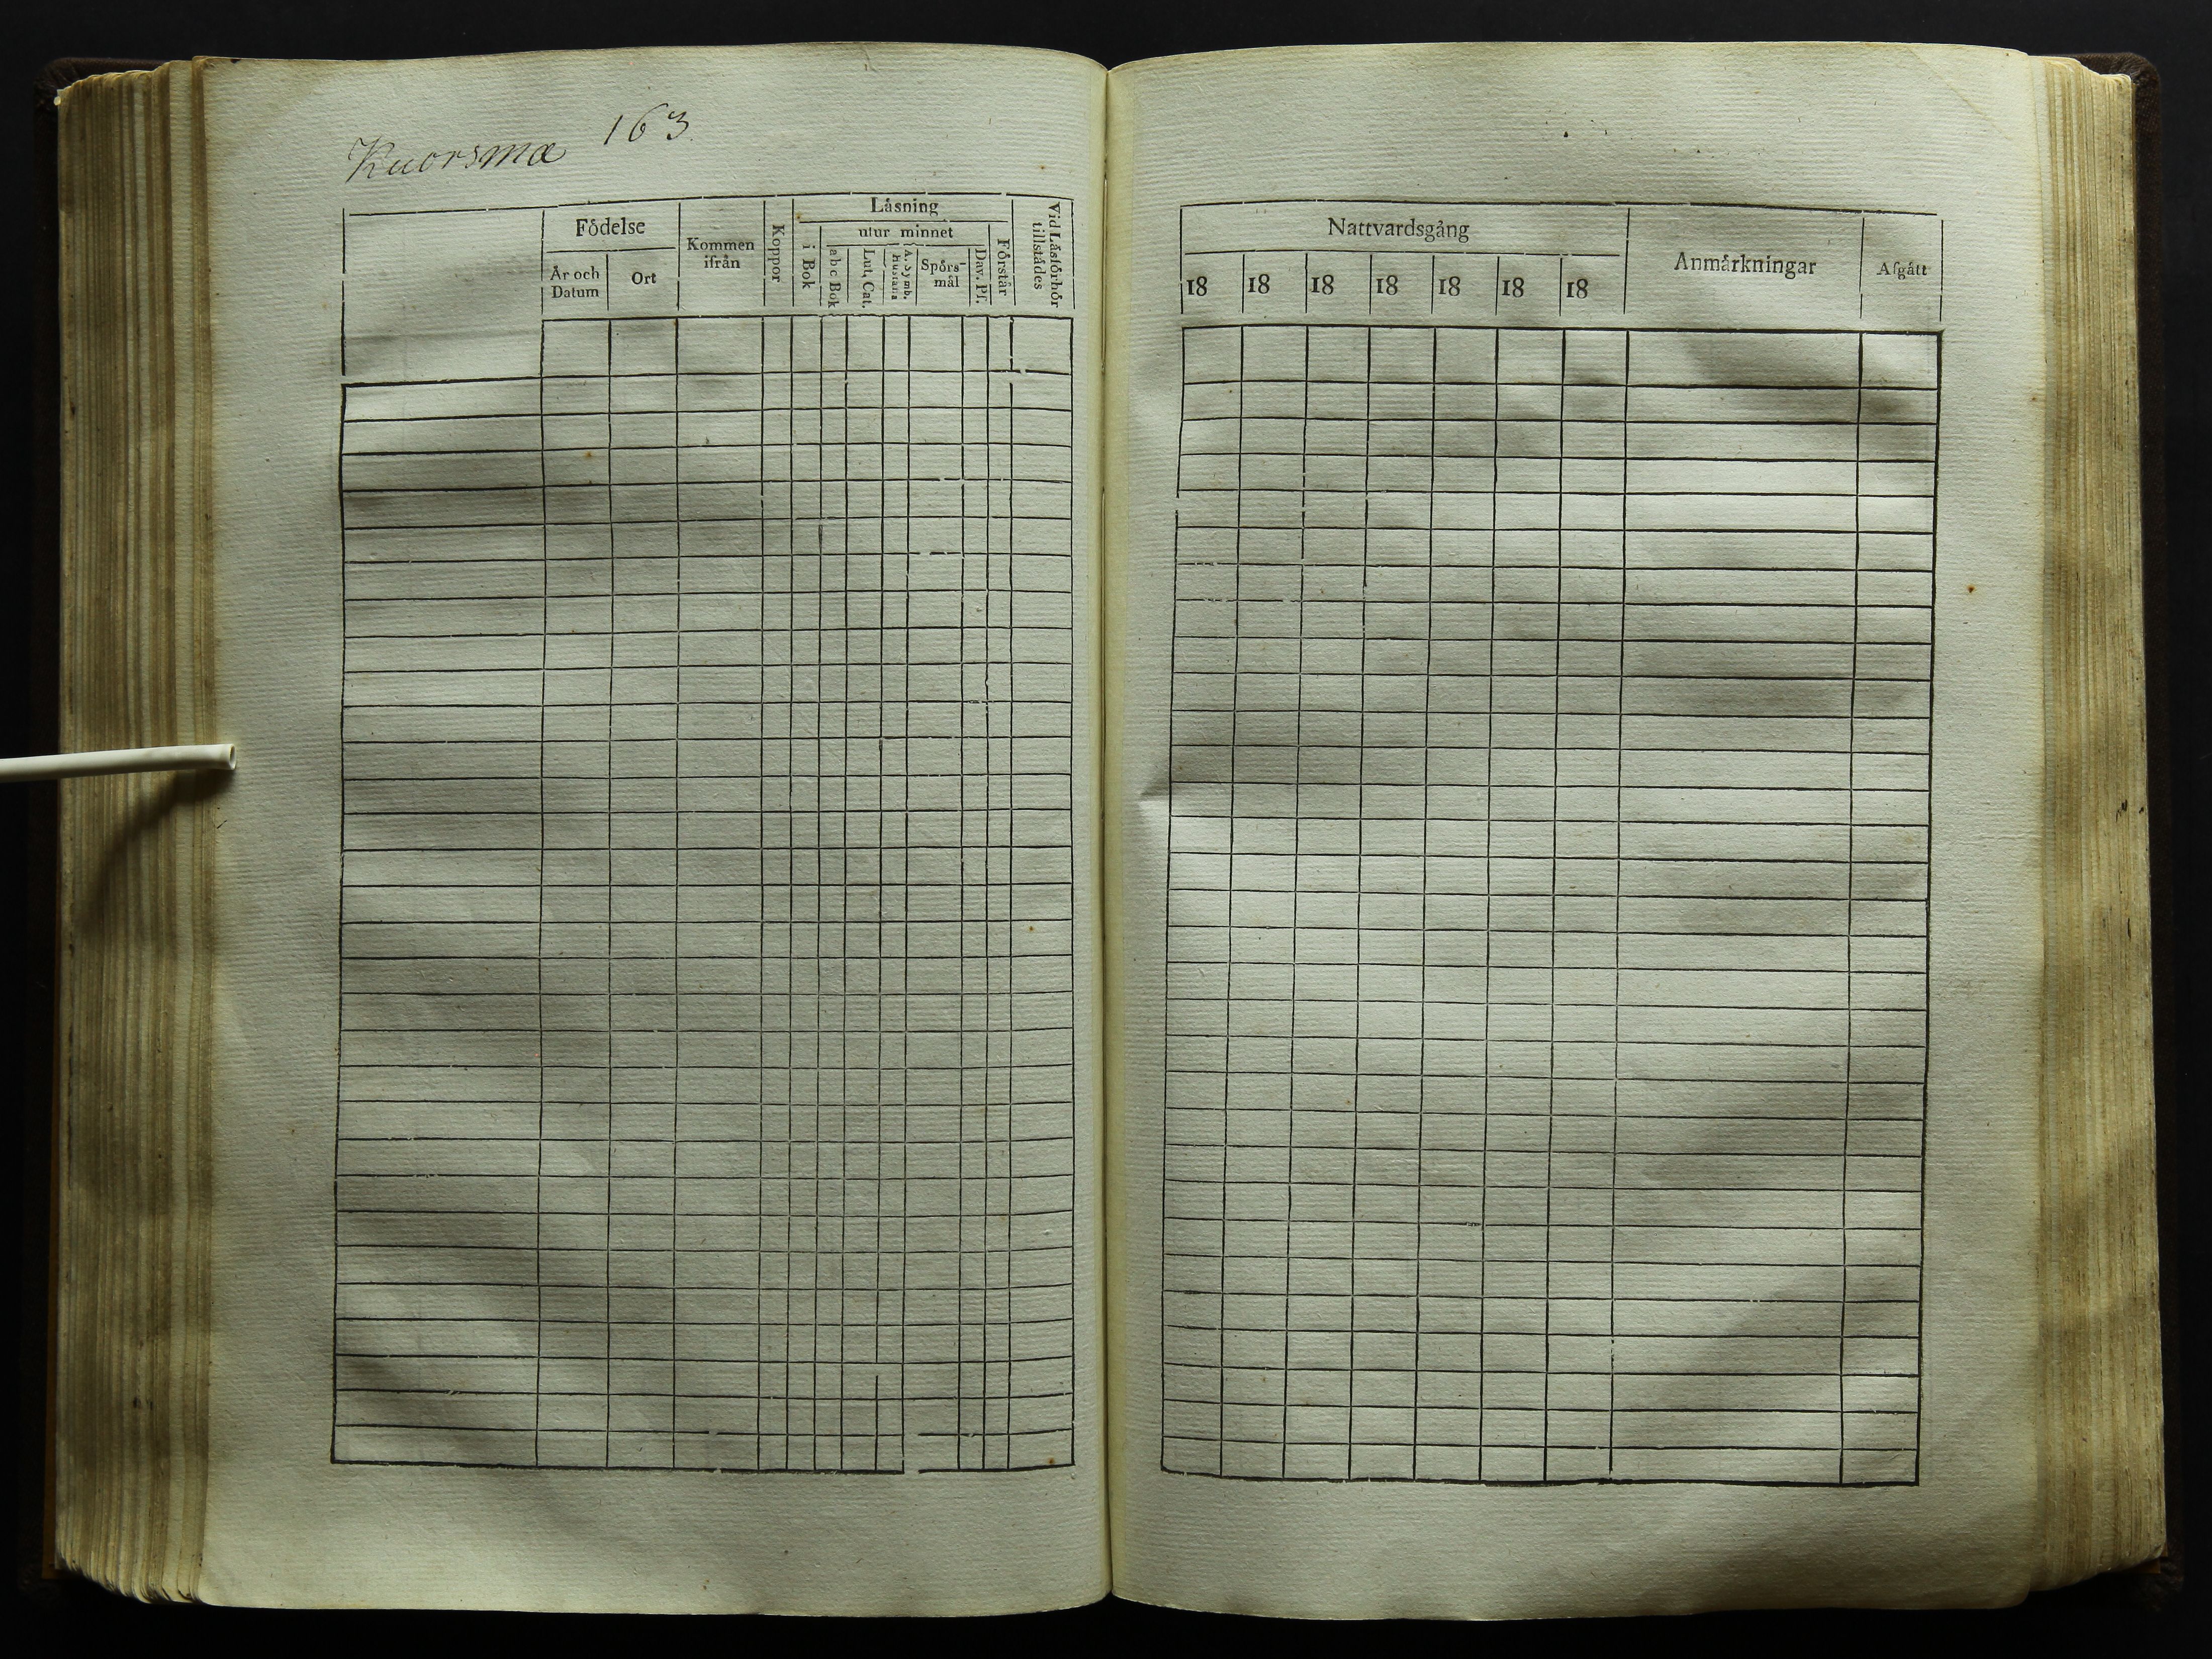 163
Kuorsmæ
Födelse
År och Datum
Ort
Kommen ifrån
Koppor
Läsning
i Bok
utur minnet
abc Bok
Lut. Cat.
A. Symb.
Hustafla
Spörsmål
Dav. Ps.
Förstår
Vid Läsförhör tillstädes
Nattvardsgång
18 18 18 18 18 18 18
Anmärkningar
Afgått